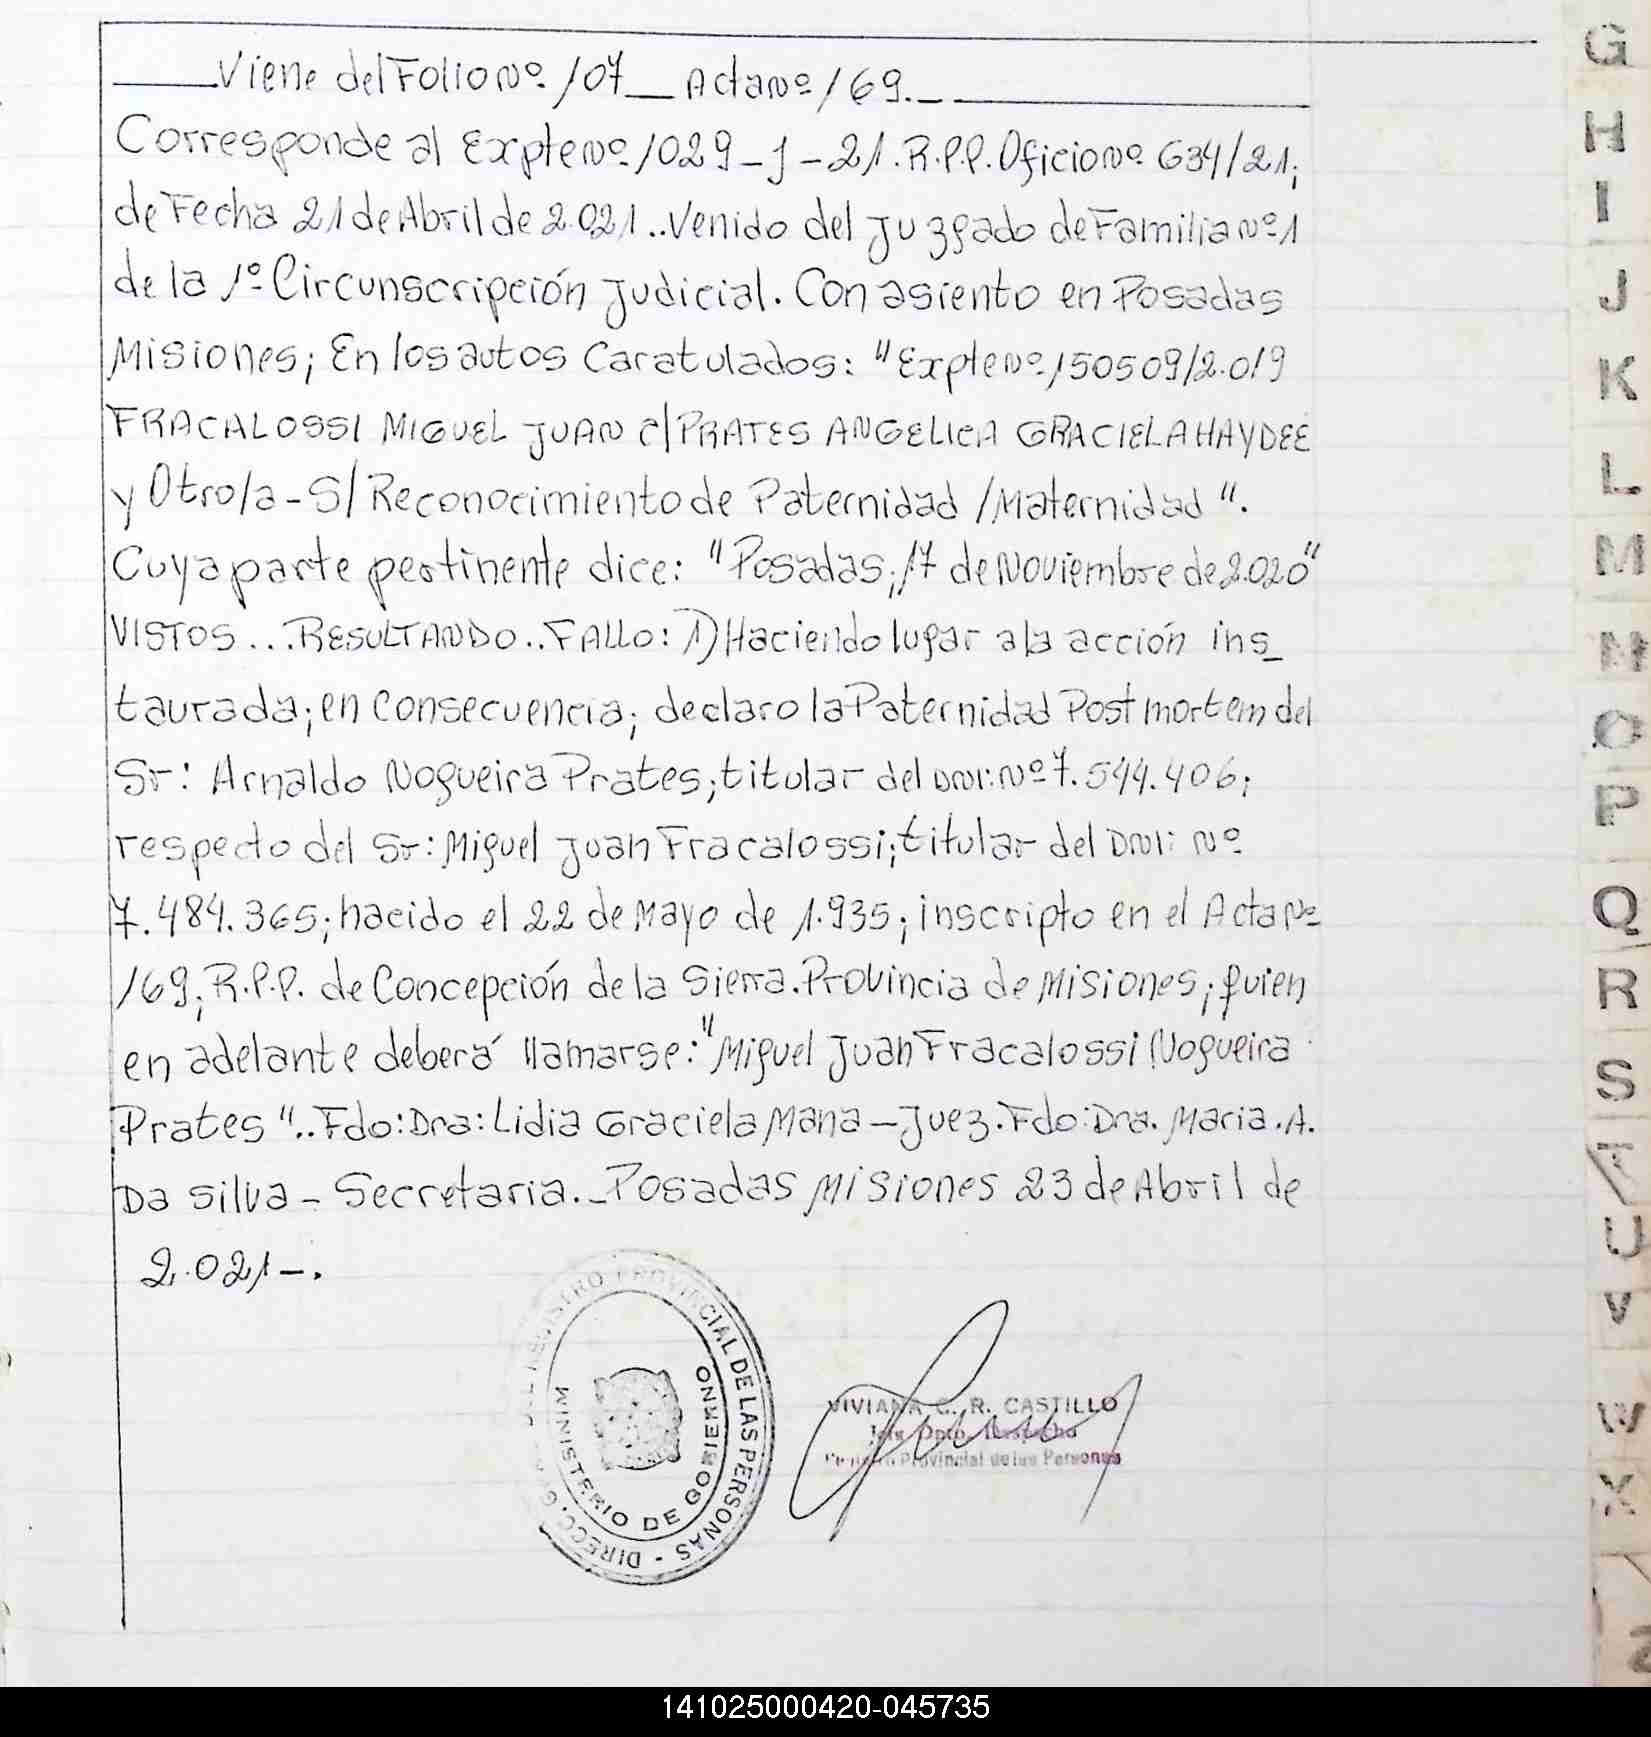 Viene del Folio Nº 107 Acta Nº 169.-
Corresponde al Expte Nº 1029-J-21. R.P.P. Oficio Nº 634/21;
de Fecha 21 de Abril de 2.021.. Venido del Juzgado de Familia Nº 1
de la 1º Circunscripción Judicial. Con asiento en Posadas
Misiones; En los autos Caratulados: "Expte Nº 150509/2.019
FRACALOSSI MIGUEL JUAN C/ PRATES ANGELICA GRACIELA HAYDEE
y Otro/a - S/ Reconocimiento de Paternidad /Maternidad".
Cuya parte pertinente dice: "Posadas; 17 de Noviembre de 2.020"
VISTOS... RESULTANDO.. FALLO: 1) Haciendo lugar a la acción ins_
taurada; en consecuencia; declaro la Paternidad Post mortem del
Sr: Arnaldo Nogueira Prates; titular del DNI: Nº 7.544.406;
respecto del Sr: Miguel Juan Fracalossi; titular del DNI: Nº
7.484.365; nacido el 22 de Mayo de 1.935; inscripto en el Acta Nº
169; R.P.P. de Concepción de la Sierra. Provincia de Misiones; quien
en adelante deberá llamarse: "Miguel Juan Fracalossi Nogueira
Prates".. Fdo: Dra: Lidia Graciela Mana - Juez. Fdo: Dra. Maria. A.
Da Silva - Secretaria._ Posadas Misiones 23 de Abril de
2.021-.
DIRECC. GRAL. DEL REGISTRO PROVINCIAL DE LAS PERSONAS -
MINISTERIO DE GOBIERNO
VIVIANA C. R. CASTILLO
Jefe Dpto. Despacho
Registro Provincial de las Personas
G
H
I
J
K
L
M
N
O
P
Q
R
S
T
U
V
W
X
Z
141025000420-045735